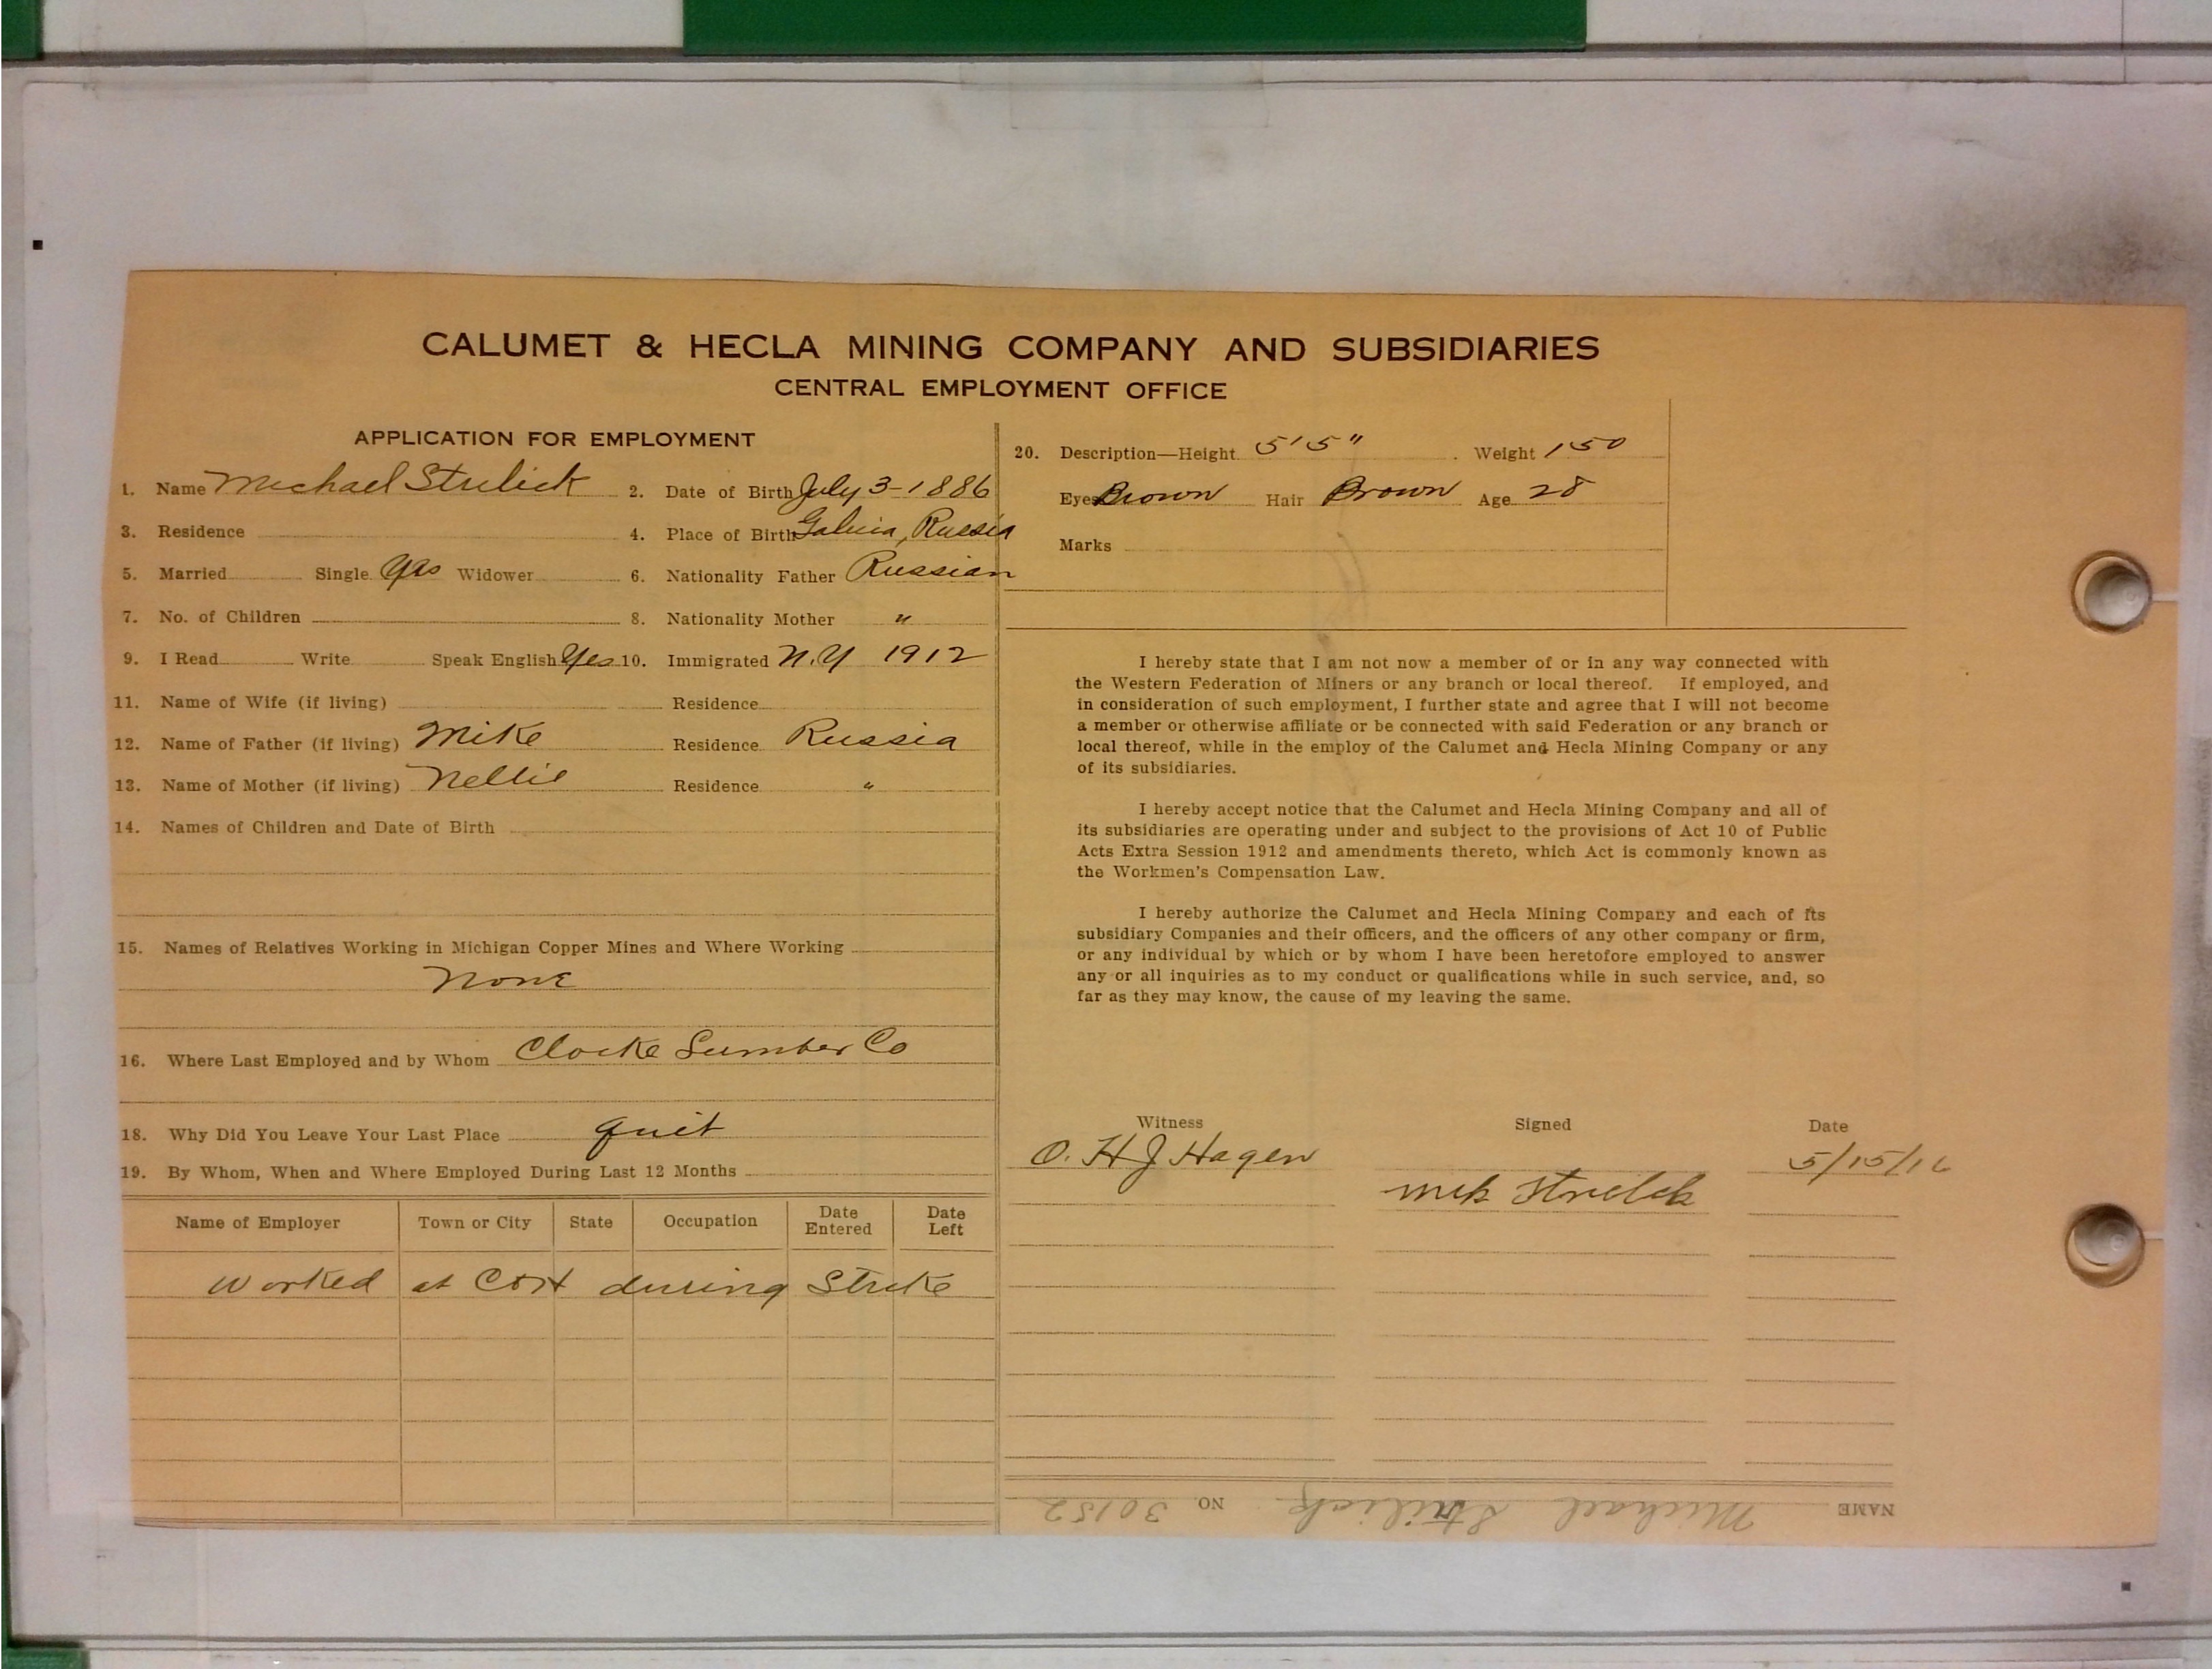 CALUMET & HECLA MINING COMPANY AND SUBSIDIARIES
CENTRAL EMPLOYMENT OFFICE
APPLICATION FOR EMPLOYMENT
1. Name Michael Strelick 2. Date of Birth July 3-1886
3. Residence 4. Place of Birth Russia
5. Married Single Yes Widower 6. Nationality Father Russian
7. No. of Children 8. Nationality Mother "
9. I Read Write Speak English Yes 10. Immigrated N.Y 1912
11. Name of Wife (if living) Residence
12. Name of Father (if living) Mike Residence Russia
13. Name of Mother (if living) Nellie Residence "
14. Names of Children and Date of Birth
15. Names of Relatives Working in Michigan Copper Mines and Where Working
None
16. Where Last Employed and by Whom Lumber Co
18. Why Did You Leave Your Last Place quit
19. By Whom, When and Where Employed During Last 12 Months
Name of Employer Town or City State Occupation Date Entered Date Left
Worked at during Strike
20. Description—Height 5'5" Weight 150
Eyes Brown Hair Brown Age 28
Marks
I hereby state that I am not now a member of or in any way connected with
the Western Federation of Miners or any branch or local thereof. If employed, and
in consideration of such employment, I further state and agree that I will not become
a member or otherwise affiliate or be connected with said Federation or any branch or
local thereof, while in the employ of the Calumet and Hecla Mining Company or any
of its subsidiaries.
I hereby accept notice that the Calumet and Hecla Mining Company and all of
its subsidiaries are operating under and subject to the provisions of Act 10 of Public
Acts Extra Session 1912 and amendments thereto, which Act is commonly known as
the Workmen's Compensation Law.
I hereby authorize the Calumet and Hecla Mining Company and each of its
subsidiary Companies and their officers, and the officers of any other company or firm,
or any individual by which or by whom I have been heretofore employed to answer
any or all inquiries as to my conduct or qualifications while in such service, and, so
far as they may know, the cause of my leaving the same.
Witness Signed Date
O. H J Hagen 5/15/16
NAME Michael Strelick NO. 30152